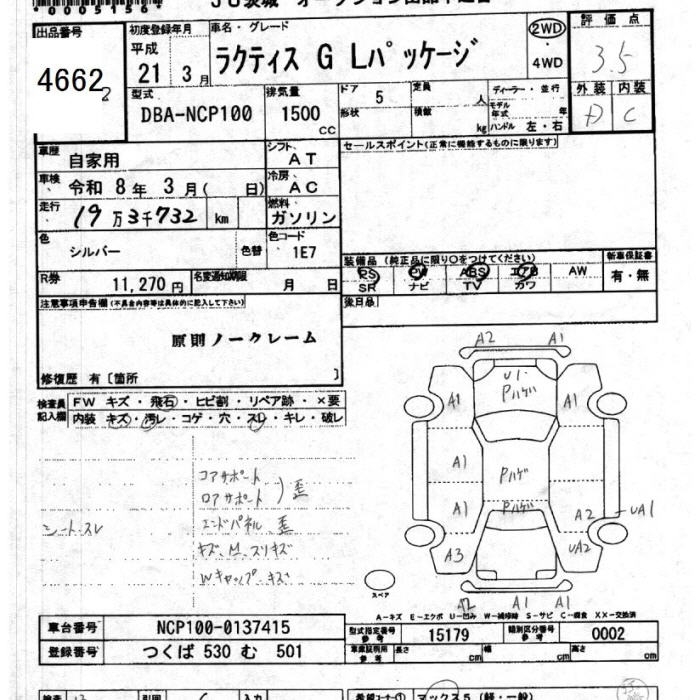 *0005156*
JU茨城 オークション出品申込書
出品番号 初度登録年月 車名・グレード 評価点
4662 2
平成 21年 3月
ラクティス G Lパッケージ
2WD・4WD
3.5
外装 内装
D C
型式 排気量 ドア 5 定員 人 ディーラー・並行
DBA-NCP100 1500 cc
形状 積数 kg モデル年式 年 ハンドル 左・右
車歴 自家用 シフト AT セールスポイント(正常に機能するものに限ります)
車検 令和 8年 3月( 日) 冷房 AC
走行 19万3千732 km 燃料 ガソリン
色 シルバー 色替 色コード 1E7
装備品(純正品に限り○をつけてください) 新車保証書
PS PW ABS エアB AW 有・無
SR ナビ TV カワ
R券 11,270円 名変通知期限 月 日
後日品
注意事項申告欄(不具合内容等は具体的に記入して下さい)
原則ノークレーム
修復歴 有〔箇所 〕
検査員記入欄
FW キズ・飛石・ヒビ割・リペア跡・×要
内装 キズ・汚レ・コゲ・穴・スレ・キレ・破レ
シートスレ
コアサポート
ロアサポート )歪
エンドパネル 歪
キズ、M、スリキズ
Wキャップ・キズ
A2 A1
U1
Pハゲ
A1 A1
A1 Pハゲ
A1 Pハゲ A2 UA1
A3 UA2
A2 A1 A1
スペア
A-キズ E-エクボ U-凹み W-補修跡 S-サビ C-腐食 XX-交換済
車台番号 NCP100-0137415
型式指定番号 参考 15179 類別区分番号 参考 0002
登録番号 つくば 530 む 501
車庫証明用 参考 長さ cm 幅 cm 高さ cm
検査 引回 入力 希望コーナー① マックス5(軽・一般)